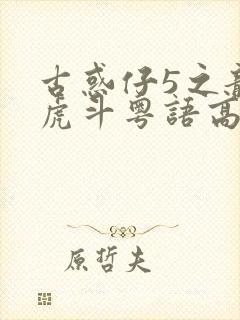 古惑仔5之
虎斗粤語高
原哲夫